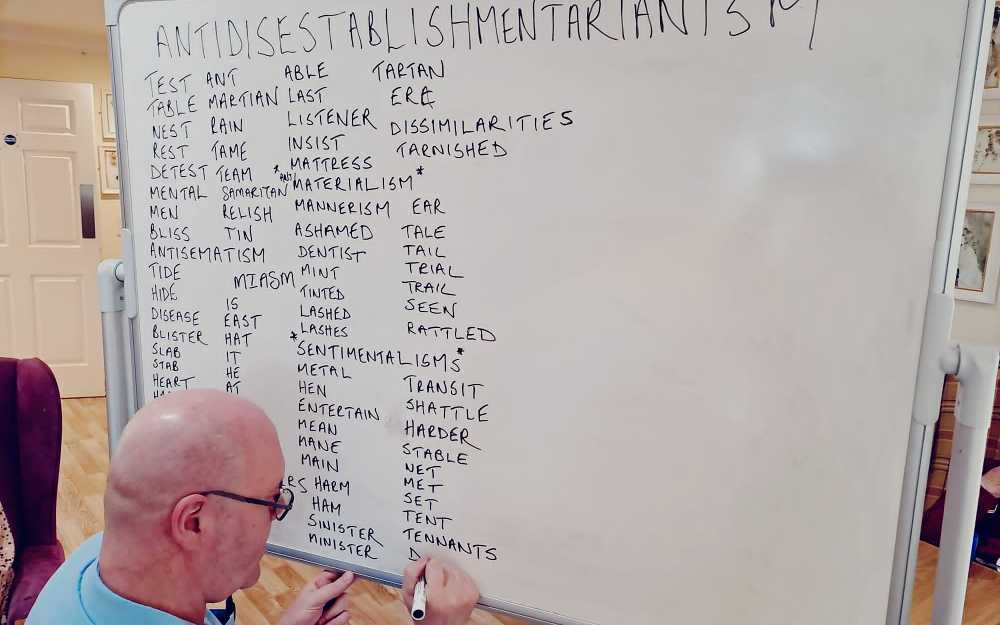 ANTIDISESTABLISHMENTARIANISM
TEST
TABLE
NEST
REST
DETEST
MENTAL
MEN
BLISS
ANTISEMATISM
TIDE
HIDE
DISEASE
BLISTER
SLAB
STAB
HEART
ANT
MARTIAN
RAIN
TAME
TEAM
SAMARITAN
RELISH
TIN
MIASM
IS
EAST
HAT
IT
HE
AT
ABLE
LAST
LISTENER
INSIST
MATTRESS
*ANTI MATERIALISM*
MANNERISM
ASHAMED
DENTIST
MINT
TINTED
LASHED
LASHES
*SENTIMENTALISMS*
METAL
HEN
ENTERTAIN
MEAN
MANE
MAIN
HARM
HAM
SINISTER
MINISTER
TARTAN
ERA
DISSIMILARITIES
TARNISHED
EAR
TALE
TAIL
TRIAL
TRAIL
SEEN
RATTLED
TRANSIT
SHATTLE
HARDER
STABLE
NET
MET
SET
TENT
TENNANTS
D